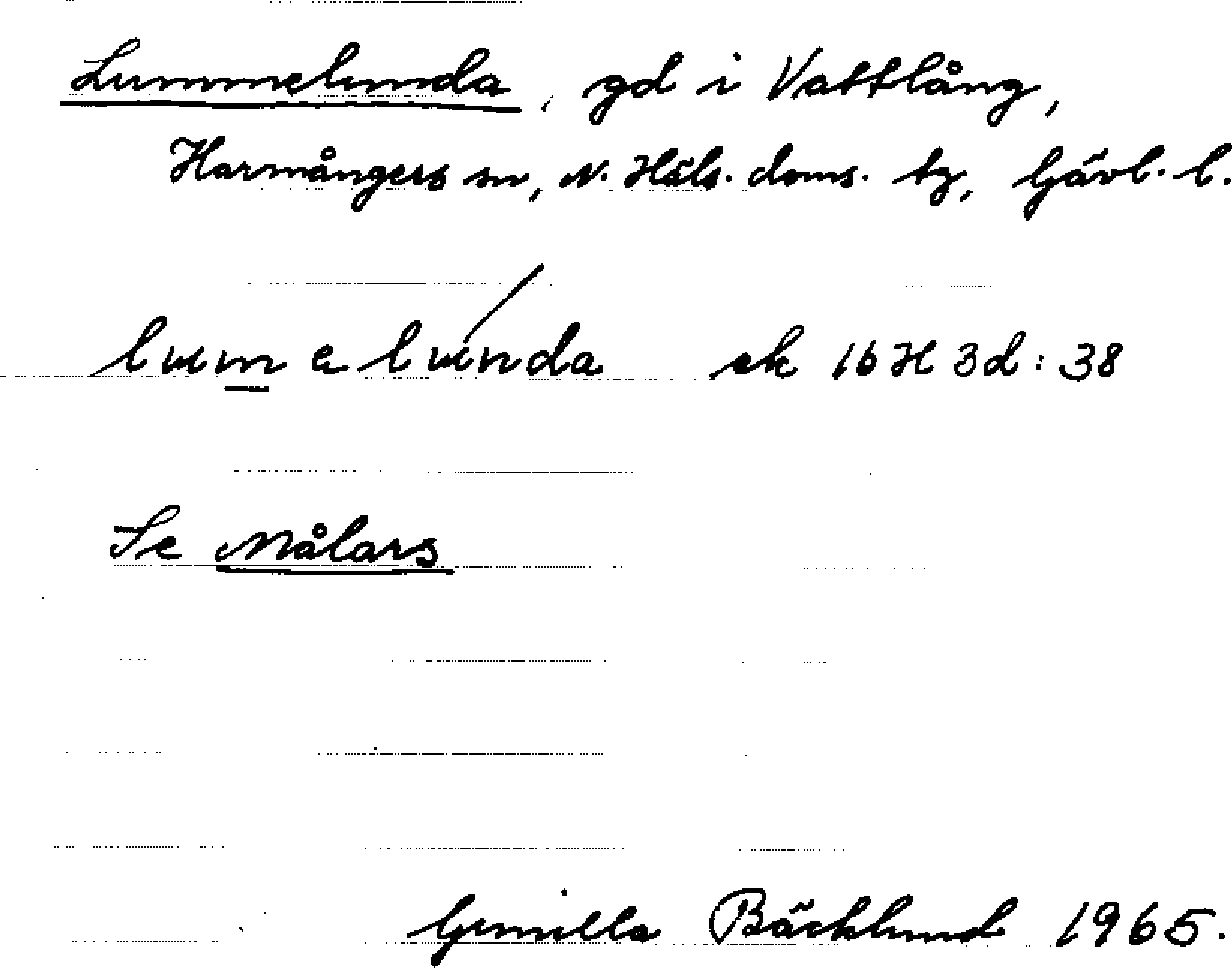 Lummelunda, gd i Vattlång,
Harmångers sn, N. Häls. doms. tg, Gävl. l.
lumelunda ek 16H 3d:38
Se Målars
Gunilla Bäcklund 1965.